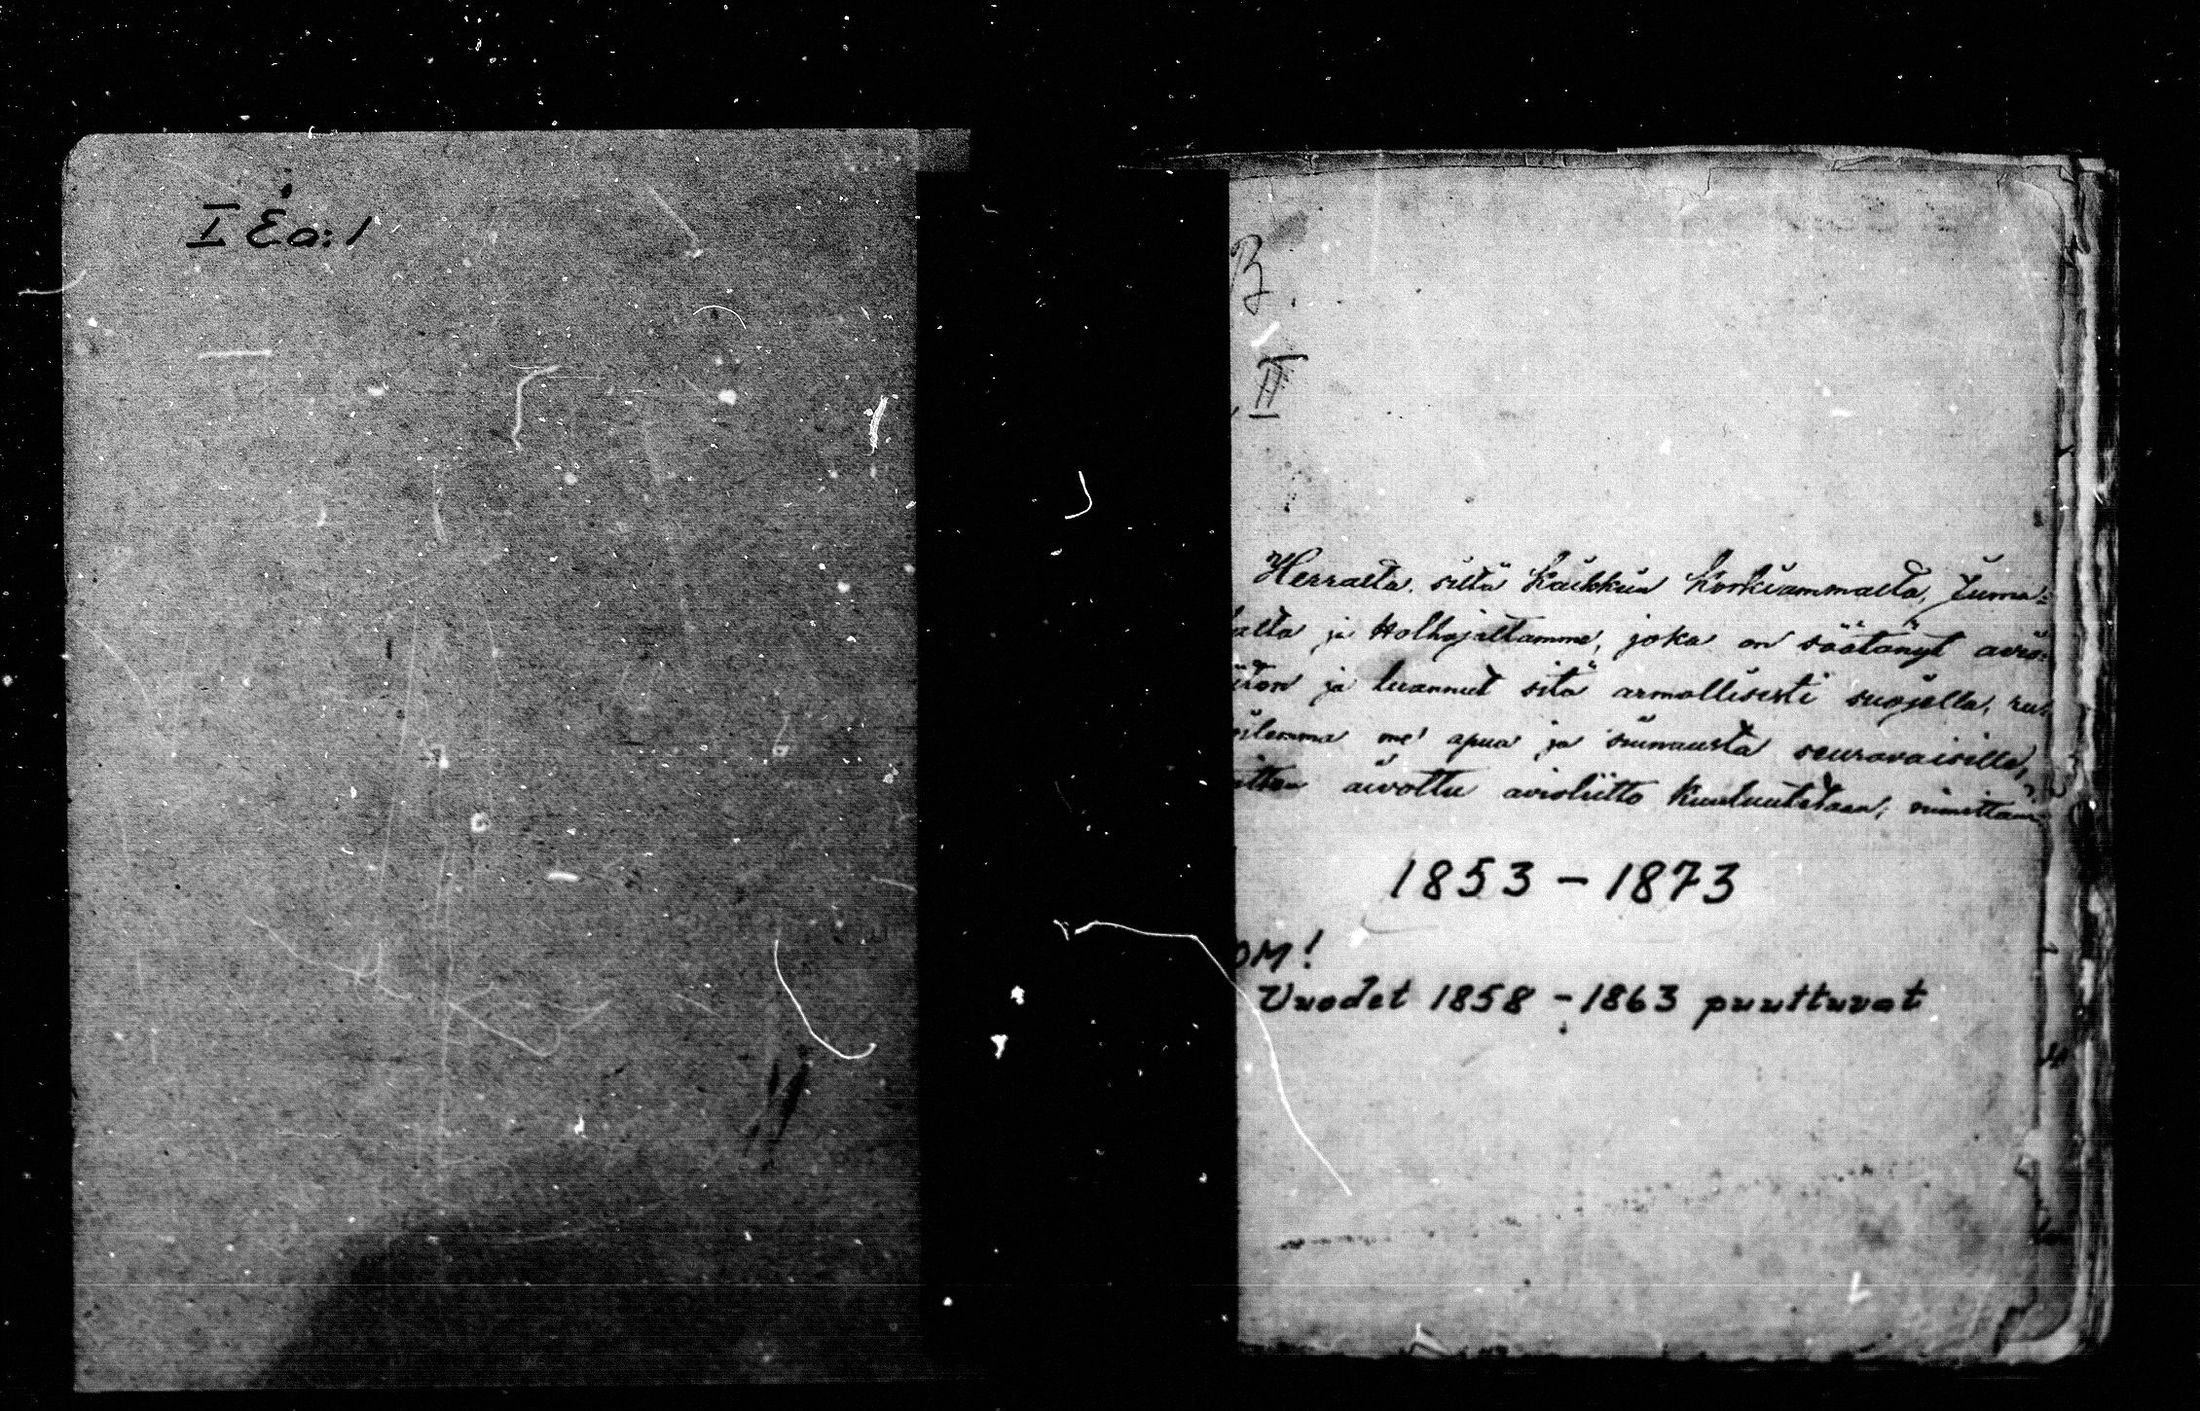 I Ea:1
B.
II
Herralta, siltä Kaikkein Korkiammalta, Juma-
lalta ja Holhojaltamme, joka on säätänyt avio-
liiton ja luvannut sitä armollisesti suojella, ru-
koilemme me' apua ja siunausta seuravaisille,
aivottu avioliitto Kuulutetaan, nimittäin:
1853 - 1873
OM!
Vuodet 1858 - 1863 puuttuvat